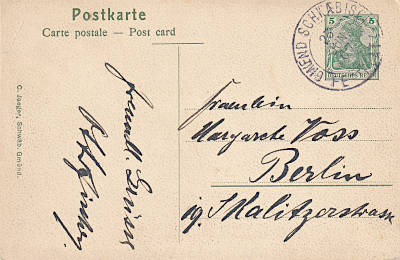 Postkarte
Carte postale — Post card
SCHWÄBISCH GMÜND
5 5
DEUTSCHES REICH
C. Jaeger, Schwäb. Gmünd.
freundl. Grüsse
Fraeulein
Margarete Voss
Berlin
19. Skalitzerstrasse